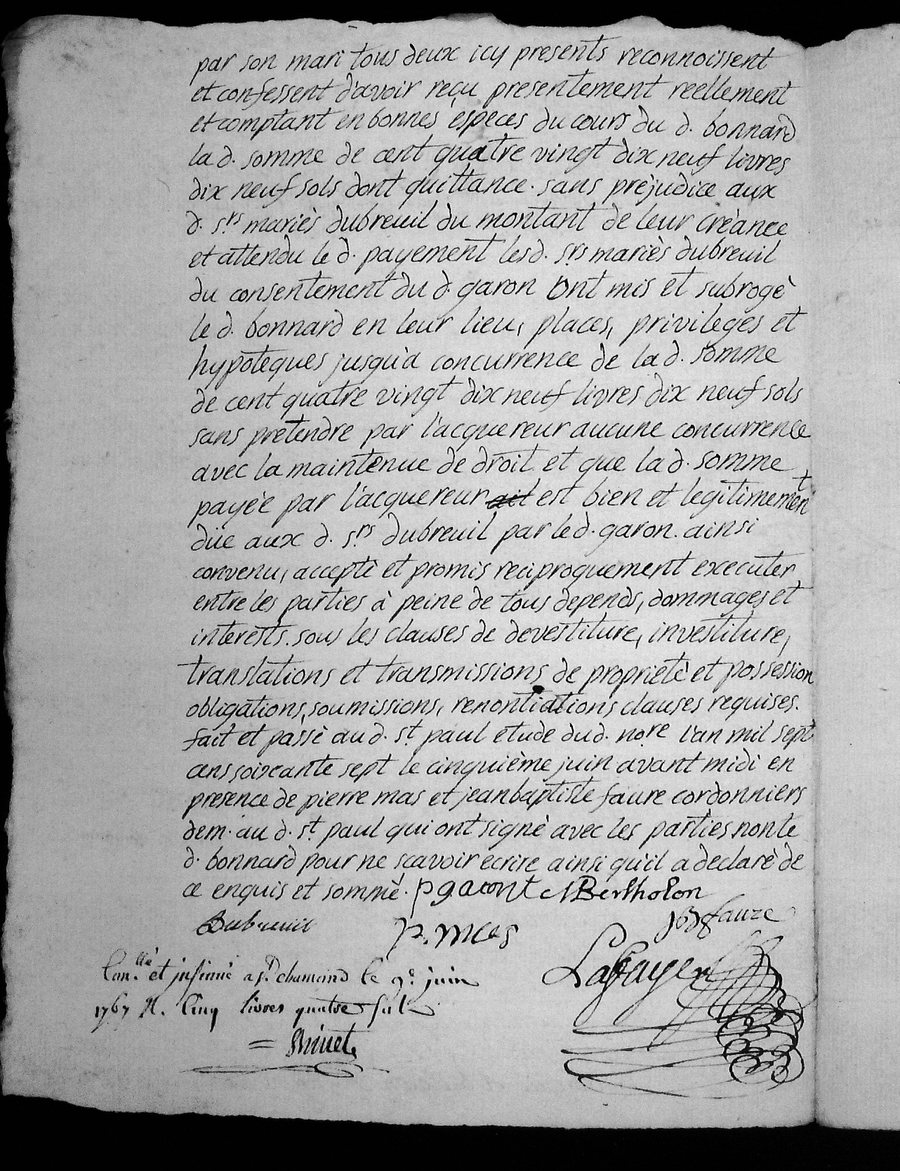 par son mari tous deux icy presents reconnoissent
et confessent d'avoir reçu presentement réellement
et comptant en bonnes espèces du cours du d. bonnard
la d. somme de cent quatre vingt dix neuf livres
dix neuf sols dont quittance. sans prejudice aux
d. srs mariès dubreuil du montant de leur créance
et attendu le d. payement lesd. srs mariès dubreuil
du consentement du d. garon ont mis et subrogè
le d. bonnard en leur lieu, places, privileges et
hypotèques jusqu'a concurrence de la d. somme
de cent quatre vingt dix neuf livres dix neuf sols
sans pretendre par l'acquereur aucune concurrence
avec la maintenue de droit et que la d. somme
payée par l'acquereur est bien et legitimement
düe aux d. srs dubreuil par le d. garon. ainsi
convenu, acceptè et promis reciproquement executer
entre les parties à peine de tous depends, dommages et
interests. sous les clauses de devestiture, investiture,
translations et transmissions de proprietè et possession
obligations, soumissions, renontiations clauses requises.
fait et passè au d. st. paul etude dud. nore l'an mil sept
cens soixcante sept le cinquième juin avant midi en
presence de pierre mas et jean baptiste faure cordonniers
dem. au d. st. paul qui ont signè avec les parties non le
d. bonnard pour ne scavoir ecrire ainsi qu'il a declarè de
ce enquis et sommè. p gacont Bertholon
Dubreuil p. mas fauze
et jnsinué a st chamand le 9e juin
1767 R. Cinq livres quatre sols